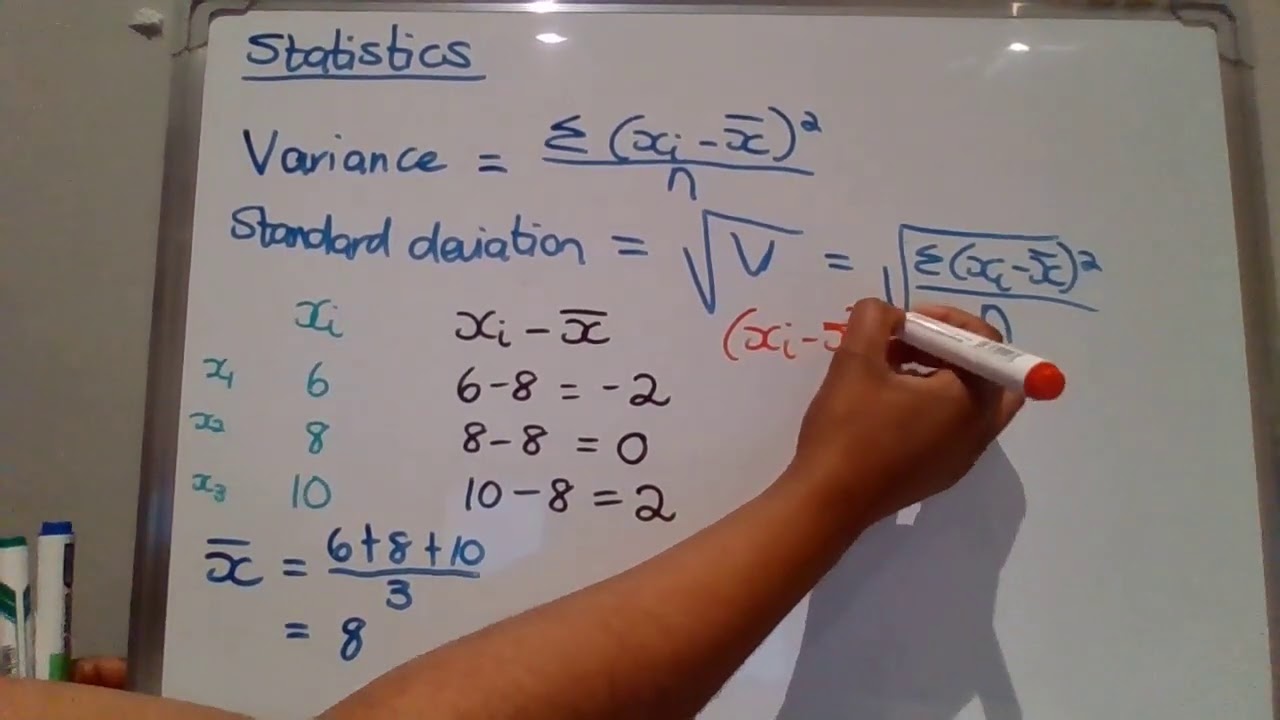 Statistics
Variance = Σ(xᵢ - x̄)² / n
Standard deviation = √V = √(Σ(xᵢ - x̄)² / n)
xᵢ xᵢ - x̄ (xᵢ - x̄
x₁ 6 6 - 8 = -2
x₂ 8 8 - 8 = 0
x₃ 10 10 - 8 = 2
x̄ = (6 + 8 + 10) / 3
= 8